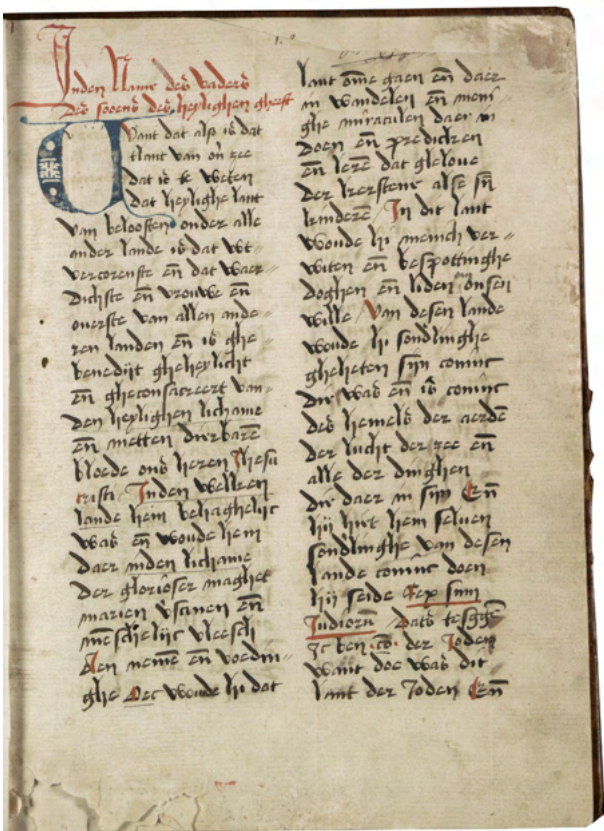 Inden Name des vaders
Des soens des heylighen gheest
Want dat also is dat
tlant van ou zee
dat is te weten
dat heylighe lant
van belooften onder alle
ander lande is dat wt-
vercorenste en̄ dat waer-
dichste en̄ vrouwe en̄
ouerste van allen ande-
ren landen en̄ is ghe-
benedijt gheheylicht
en̄ gheconsacreert van-
den heylighen lichame
en̄ metten dierbarē
bloede ons heren Jhesu
cristi Inden welken
lande hem behaghelijc
was en̄ woude hem
daer inden lichame
der glorioser maghet
marien
mēschelijc vleesch
Aen nemē en̄ voedin-
ghe Oec woude hi dat
lant ōme gaen en̄ daer
in wandelen en̄ meni-
ghe miraculen daer in
doen en̄ predicken
en̄ lerē dat gheloue
der kerstene alse sijn
kinderē In dit lant
woude hi menich ver-
witen en̄ bespottinghe
doghen en̄ liden om onsen
wille Van desen lande
woude hi sondlinghe
gheheten sijn coninc
die was en̄ is coninc
des hemels der aerdē
der lucht der zee en̄
alle der dinghen
die daer in sijn En̄
hij hiet hem seluen
sondlinghe van desen
lande coninc doen
hij seide Rex sum
Judiorū Dats tesggē
Ic ben .co. der Joden
want doe was dit
lant der Joden En̄